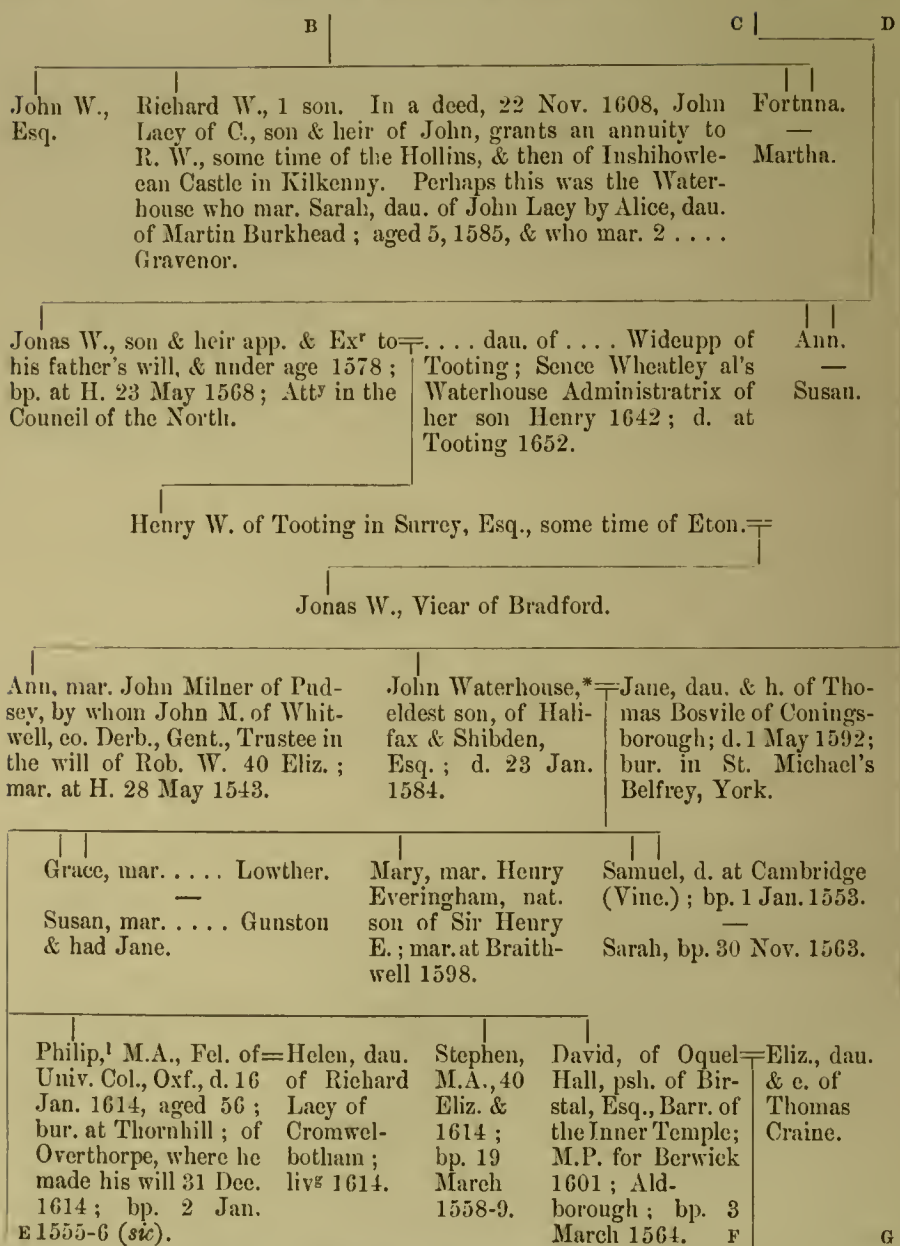 B C D
John W.,
Esq.
Richard W., 1 son. In a deed, 22 Nov. 1608, John
Lacy of C., son & heir of John, grants an annuity to
R. W., some time of the Hollins, & then of Inshihowle-
ean Castle in Kilkenny. Perhaps this was the Water-
house who mar. Sarah, dau. of John Lacy by Alice, dau.
of Martin Burkhead; aged 5, 1585, & who mar. 2 . . . .
Gravenor.
Fortuna.
—
Martha.
Jonas W., son & heir app. & Exʳ to
his father's will, & under age 1578;
bp. at H. 23 May 1568; Attʸ in the
Council of the North.
. . . . dau. of . . . . Wideupp of
Tooting; Sence Wheatley al's
Waterhouse Administratrix of
her son Henry 1642; d. at
Tooting 1652.
Ann.
—
Susan.
Henry W. of Tooting in Surrey, Esq., some time of Eton.
Jonas W., Vicar of Bradford.
Ann, mar. John Milner of Pud-
sey, by whom John M. of Whit-
well, co. Derb., Gent., Trustee in
the will of Rob. W. 40 Eliz.;
mar. at H. 28 May 1543.
John Waterhouse,*
eldest son, of Hali-
fax & Shibden,
Esq.; d. 23 Jan.
1584.
Jane, dau. & h. of Tho-
mas Bosvile of Conings-
borough; d. 1 May 1592;
bur. in St. Michael's
Belfrey, York.
Grace, mar. . . . . Lowther.
—
Susan, mar. . . . . Gunston
& had Jane.
Mary, mar. Henry
Everingham, nat.
son of Sir Henry
E.; mar. at Braith-
well 1598.
Samuel, d. at Cambridge
(Vinc.); bp. 1 Jan. 1553.
—
Sarah, bp. 30 Nov. 1563.
Philip,¹ M.A., Fel. of
Univ. Col., Oxf., d. 16
Jan. 1614, aged 56;
bur. at Thornhill; of
Overthorpe, where he
made his will 31 Dec.
1614; bp. 2 Jan.
E 1555-6 (sic).
=Helen, dau.
of Richard
Lacy of
Cromwel-
botham;
livᵍ 1614.
Stephen,
M.A., 40
Eliz. &
1614;
bp. 19
March
1558-9.
David, of Oquel
Hall, psh. of Bir-
stal, Esq., Barr. of
the Inner Temple;
M.P. for Berwick
1601; Ald-
borough; bp. 3
March 1564. F
Eliz., dau.
& c. of
Thomas
Craine.
G